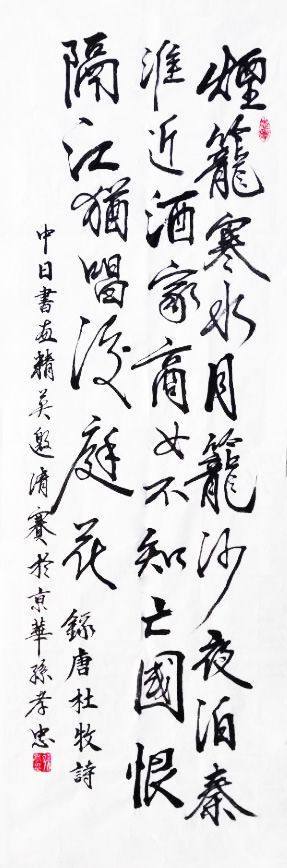 煙籠寒水月籠沙夜泊秦
淮近酒家商女不知亡國恨
隔江猶唱後庭花 錄唐杜牧詩
中日書画精英邀請賽於京華孫孝忠